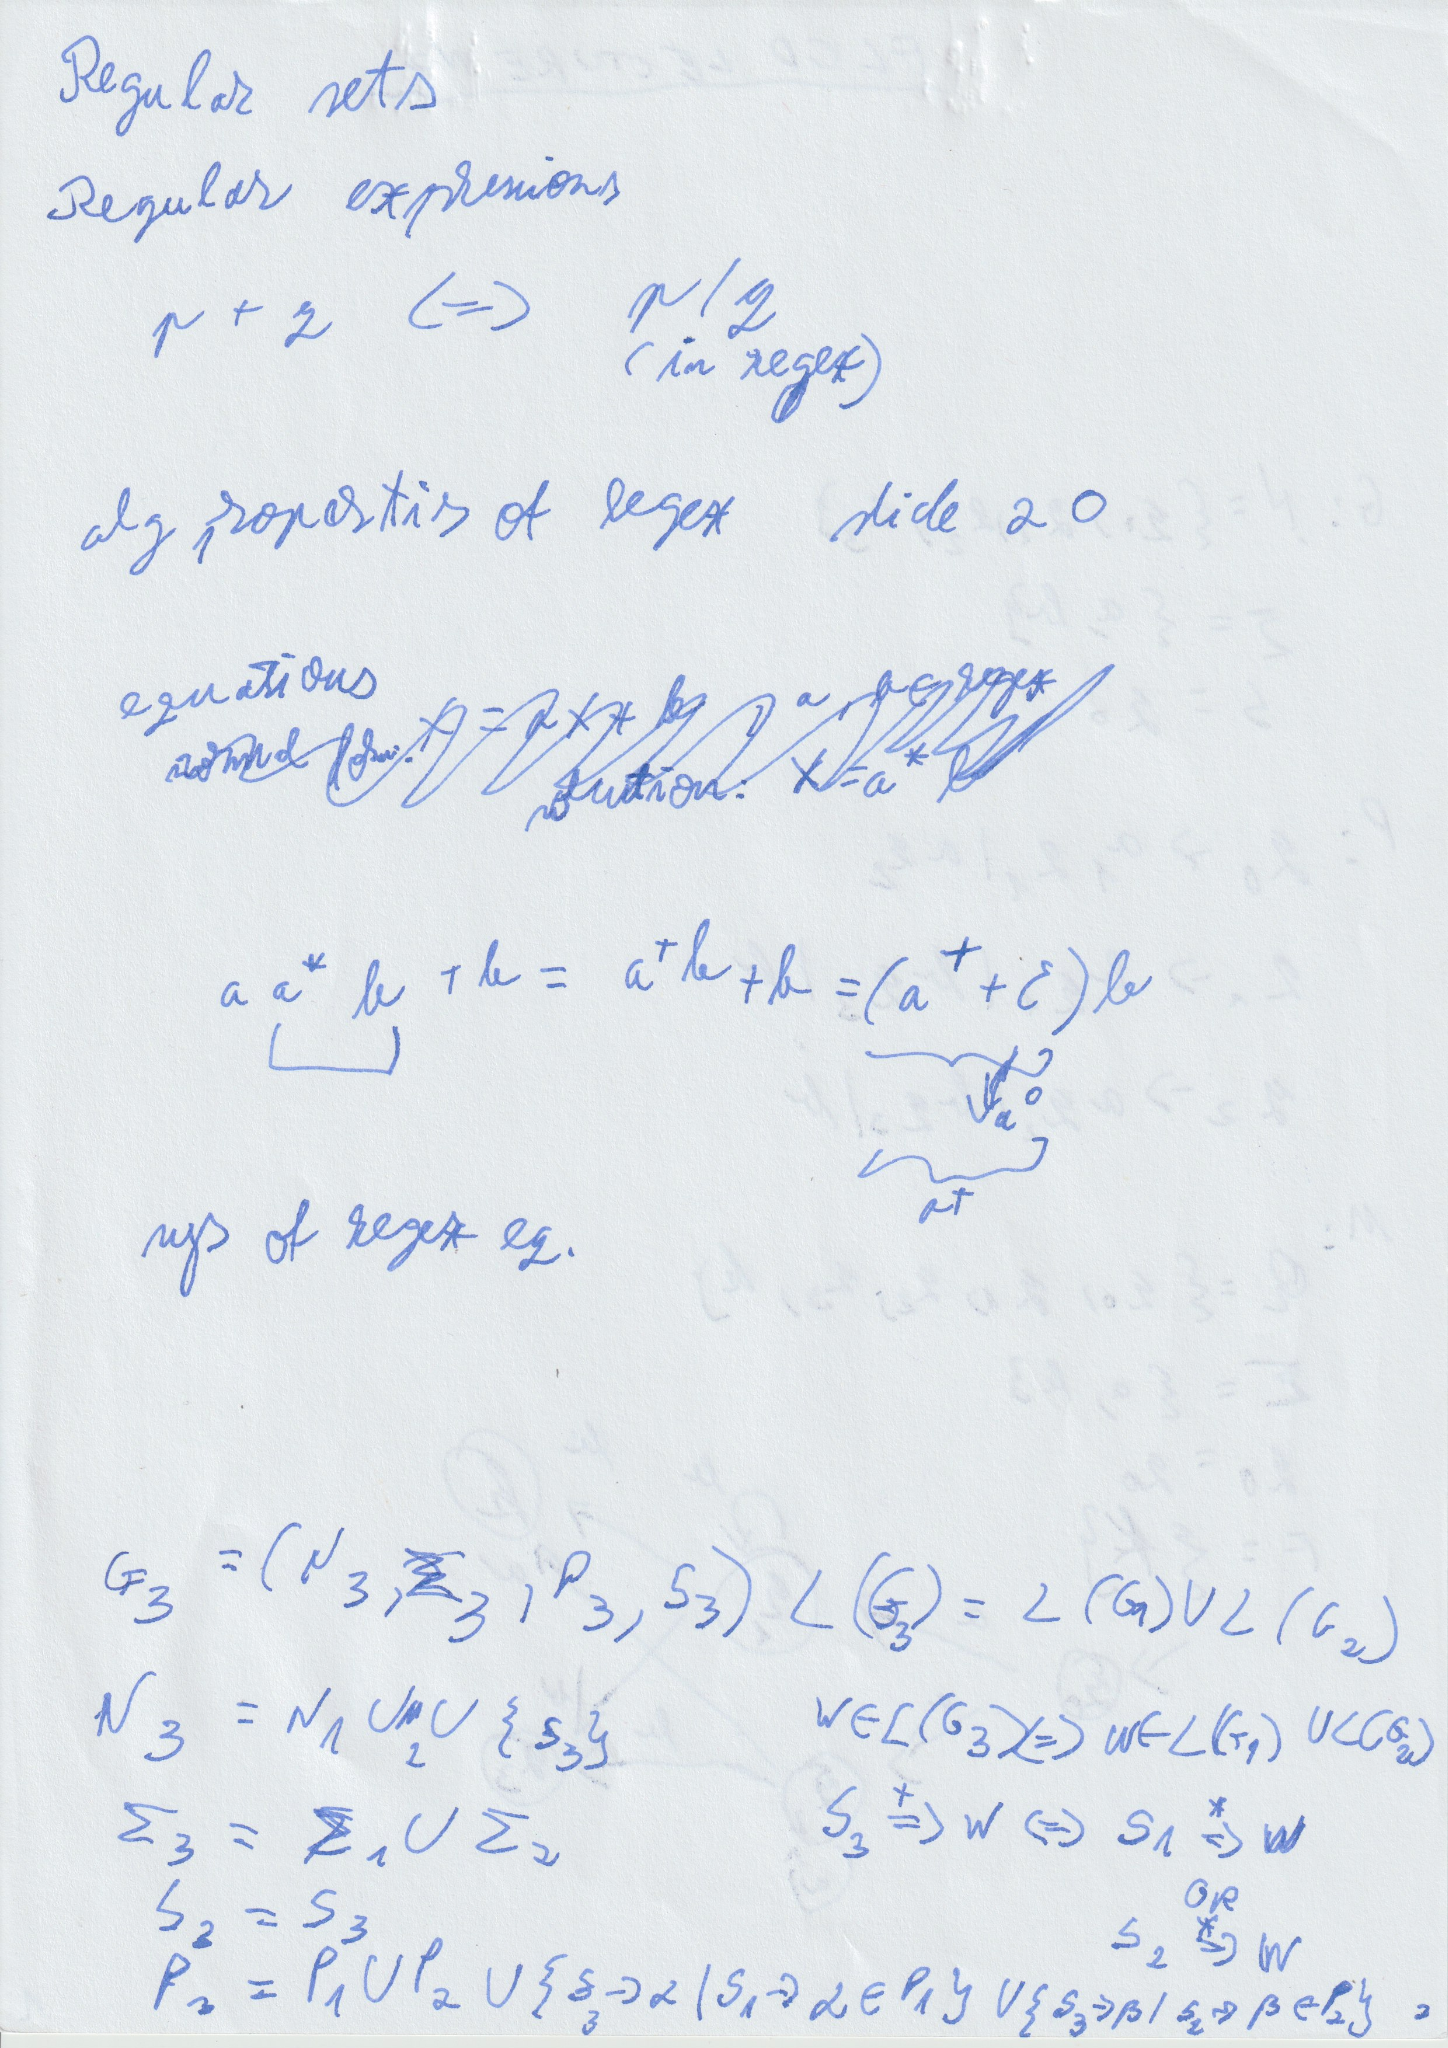 Regular sets
Regular expresions
p + q <=> p | q
(in regex)
alg properties of regex slide 20
equations
normal form: X = aX + b , a, b ∈ regex
solution: X = a* b
a a* b + b = a⁺b + b = (a⁺ + ε) b
a⁰
a⁺
sys of regex eq.
G₃ = (N₃, Σ₃, P₃, S₃) L(G₃) = L(G₁) ∪ L(G₂)
N₃ = N₁ ∪ N₂ ∪ {S₃} W ∈ L(G₃) <=> W ∈ L(G₁) ∪ L(G₂)
Σ₃ = Σ₁ ∪ Σ₂ S₃ ⁺=> W <=> S₁ *=> W
OR
S₂ = S₃ S₂ *=> W
P₃ = P₁ ∪ P₂ ∪ {S₃ -> α | S₁ -> α ∈ P₁} ∪ {S₃ -> β | S₂ -> β ∈ P₂}